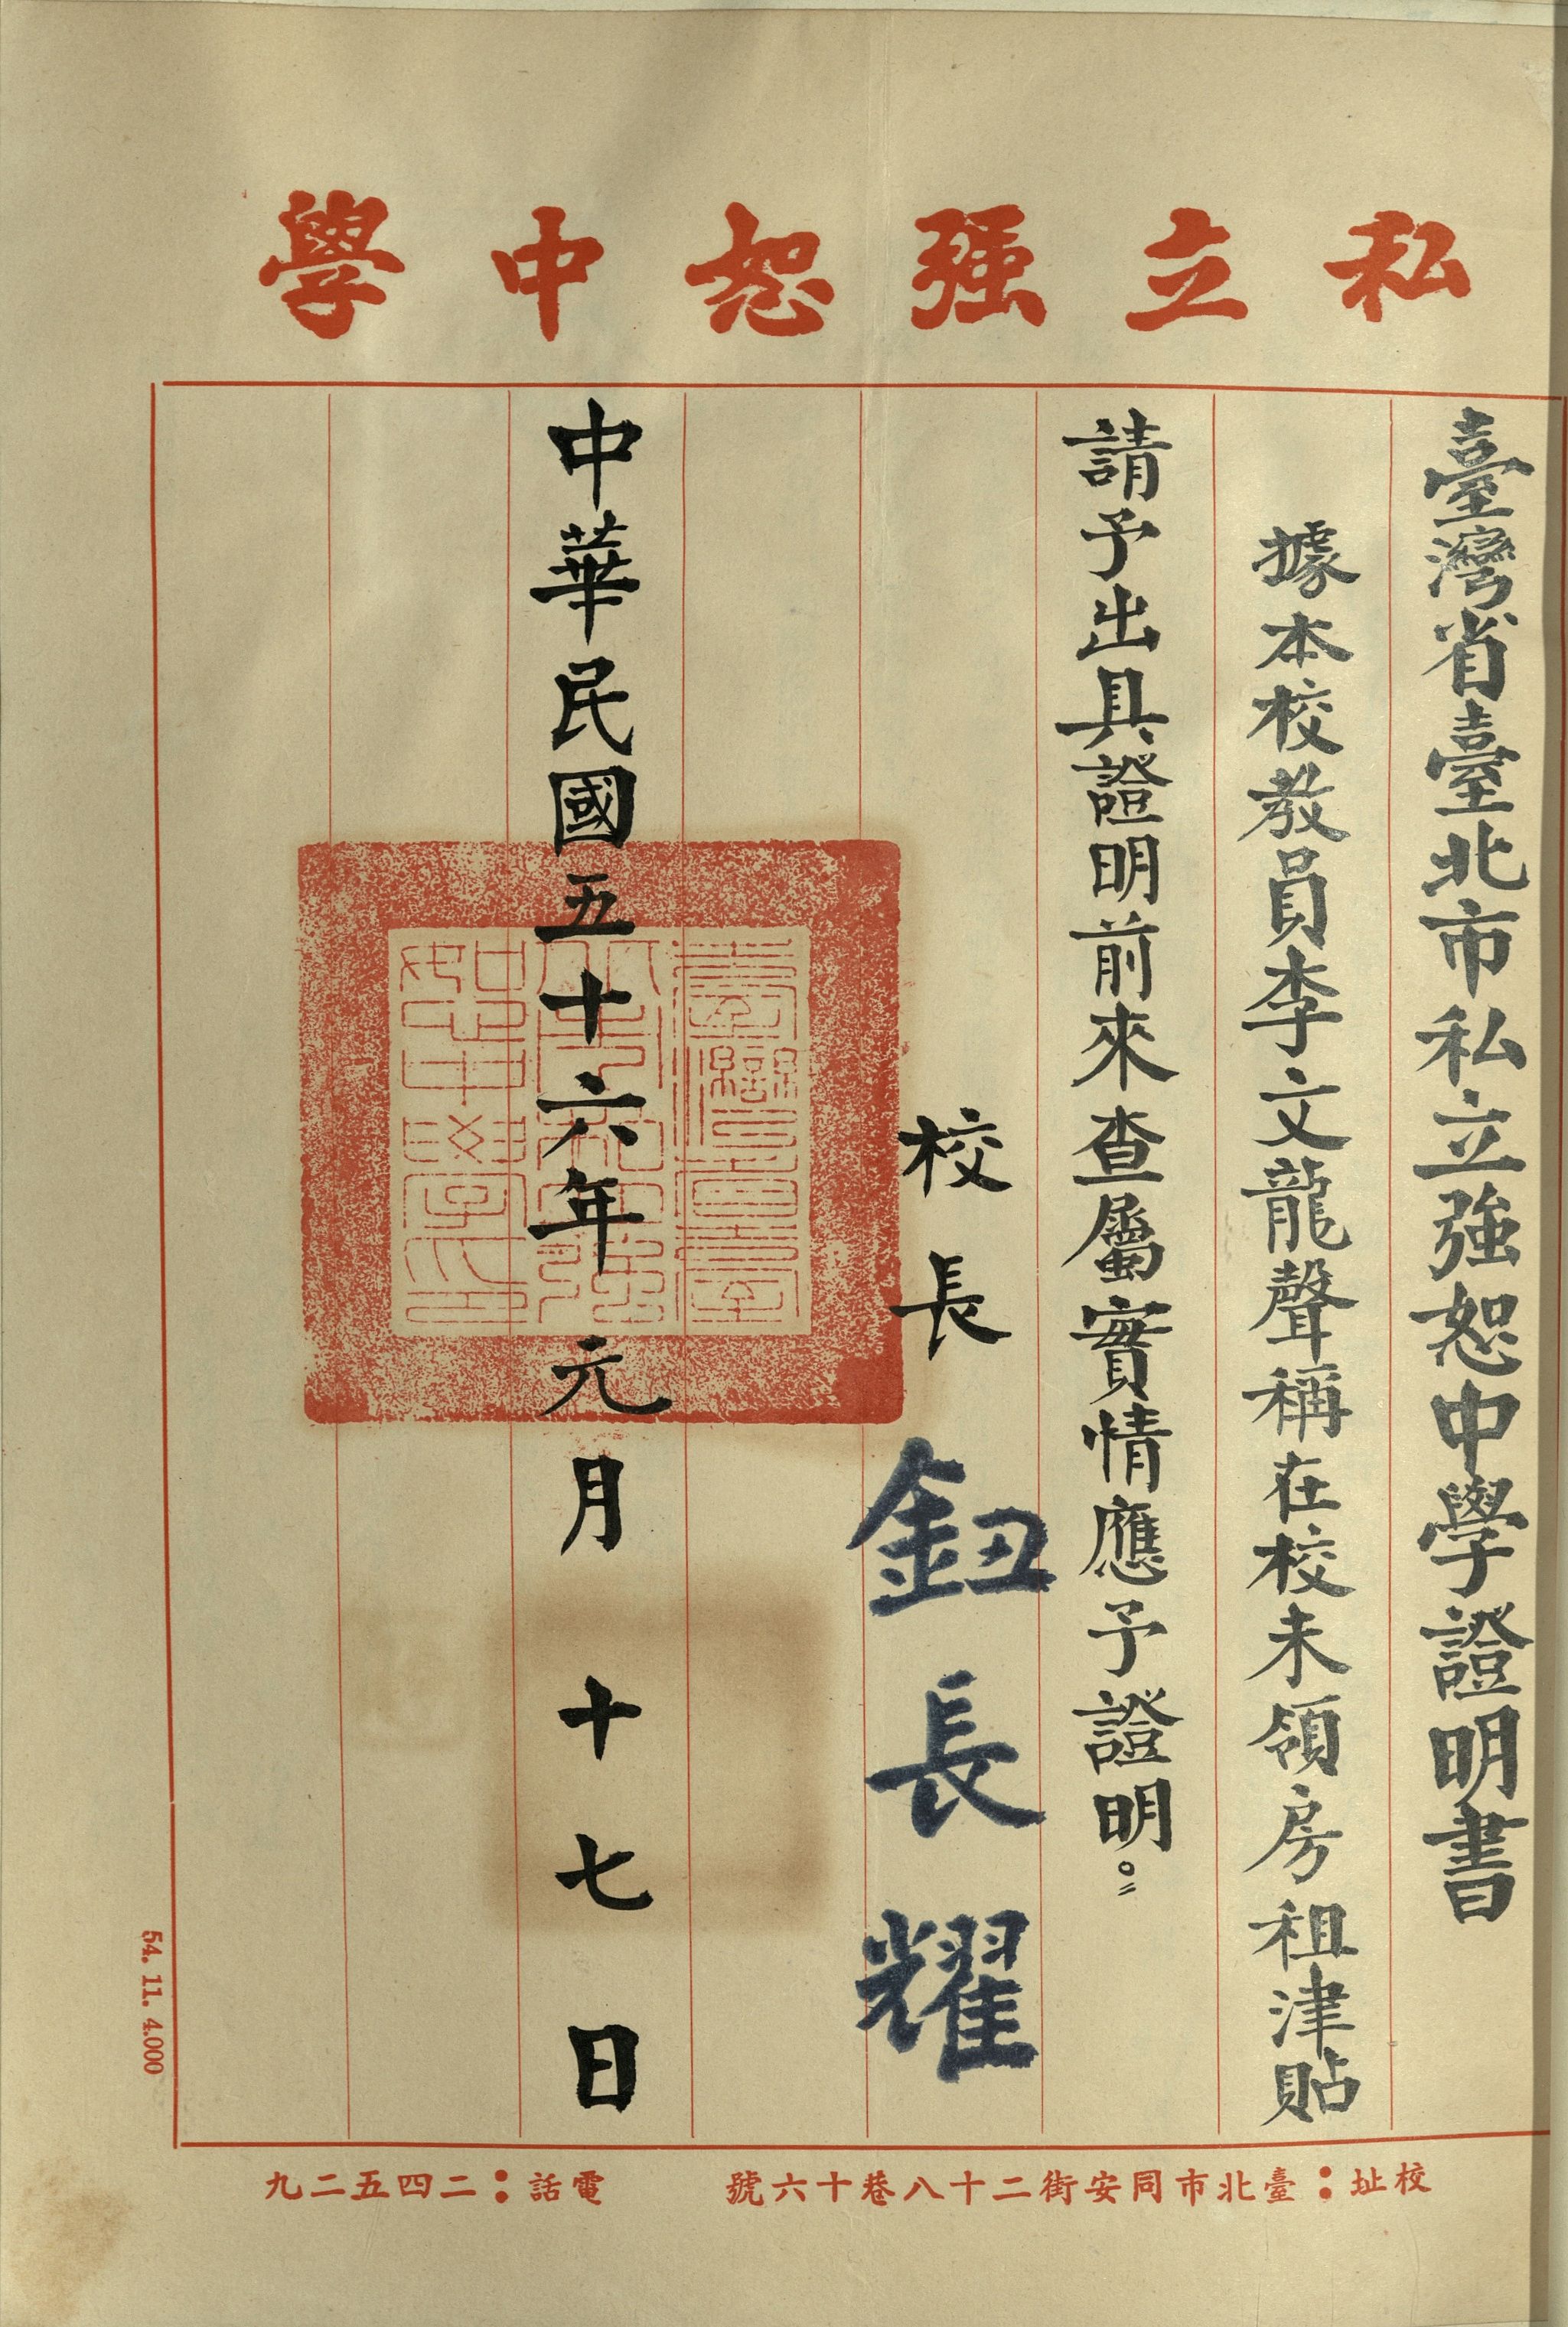 私立强恕中學
臺灣省臺北市私立強恕中學證明書
據本校教員李文龍聲稱在校未領房租津貼
請予出具證明前來查屬實情應予證明。
校長 鈕長耀
中華民國五十六年元月十七日
臺灣省臺
北市私立强
恕中學之印
校址：臺北市同安街二十八巷十六號 電話：二四五二九
54. 11. 4.000